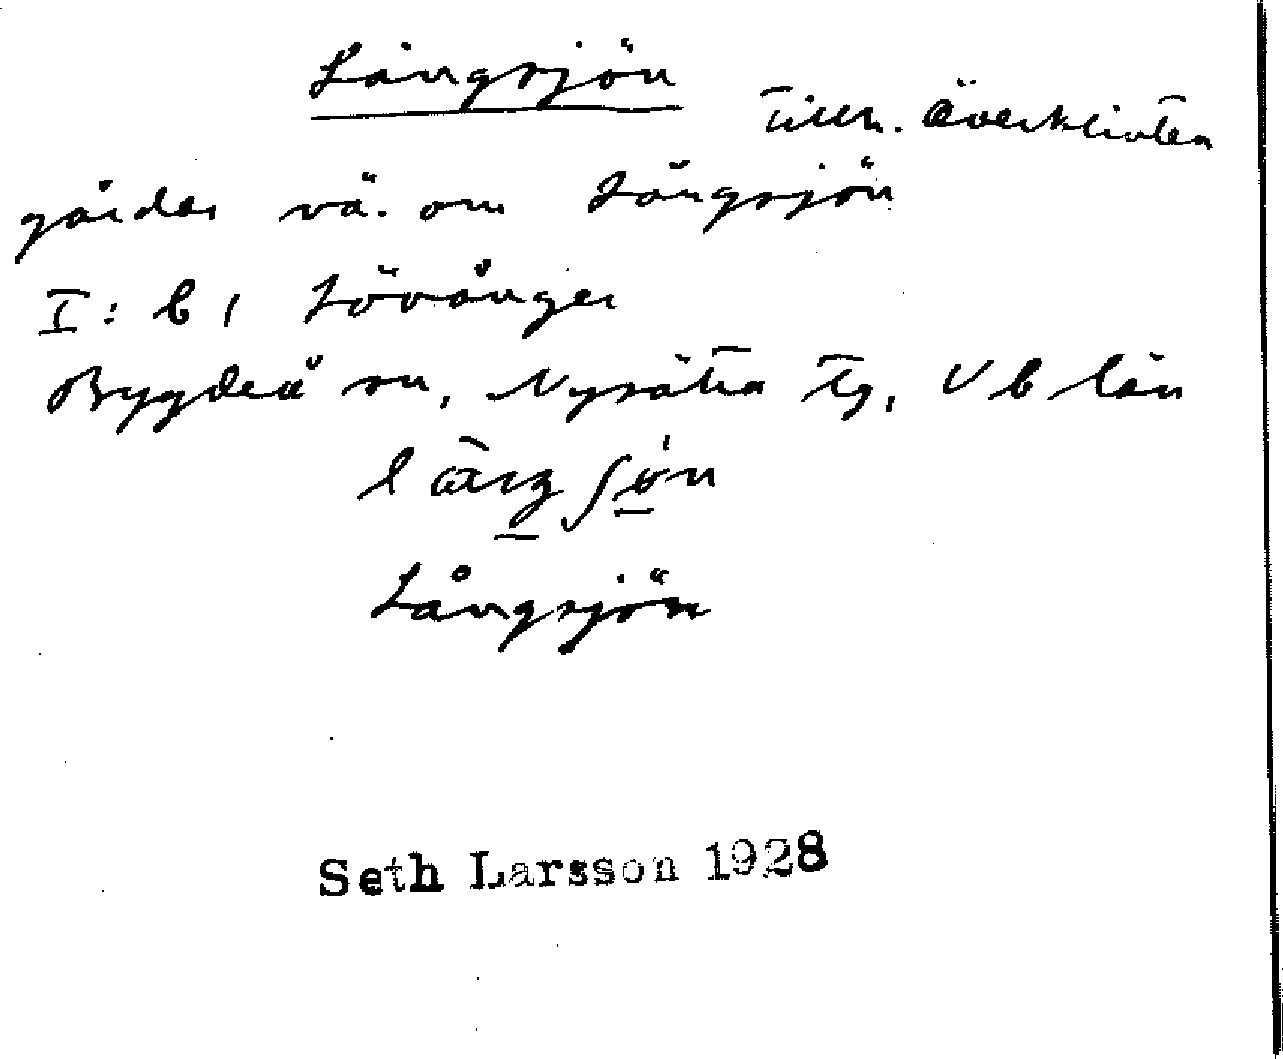 Långsjön
Tillh. Överklinten
gårdar vä. om Långsjön
I: b 1 Lövånger
Bygdeå sn, Nysätra tg, Vb län
Långsjön
Seth Larsson 1928